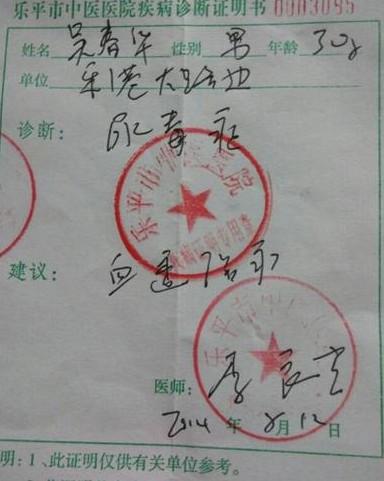 乐平市中医医院疾病诊断证明书 0003095
姓名 吴春华 性别 男 年龄 30岁
单位 乐港大路边
诊断: 尿毒症
乐平市中医医院
疾病证明专用章
建议: 血透治疗
乐平市中
医师: 李
2014 年 8 月 12 日
明:1、此证明仅供有关单位参考。